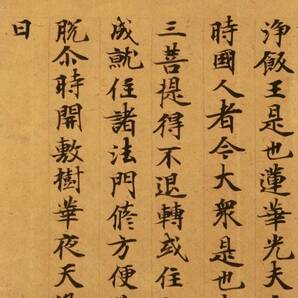 淨飯王是也蓮華光夫
時國人者今大衆是也
三菩提得不退轉或住
成就住諸法門脩方便
脫尒時開敷樹華夜天
曰